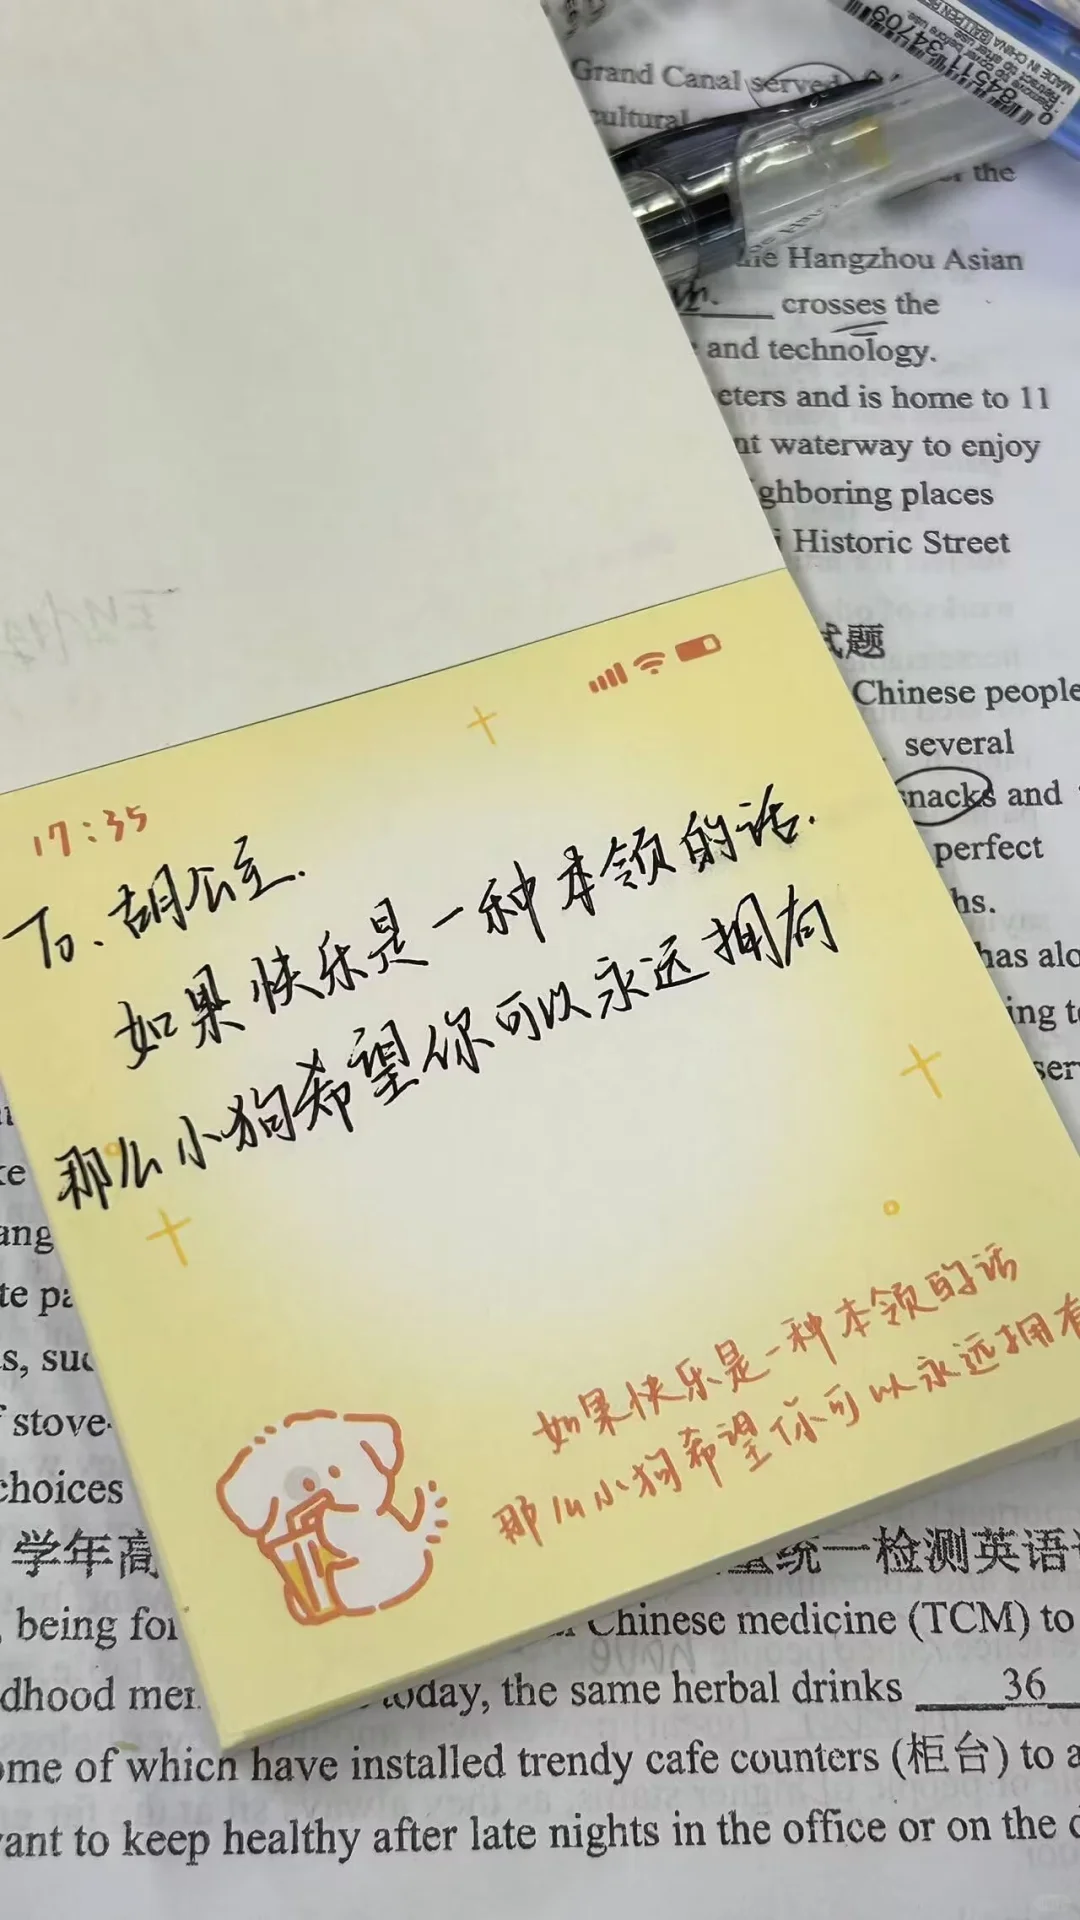 Grand Canal served
cultural
the
Hangzhou Asian
crosses the
and technology.
eters and is home to 11
nt waterway to enjoy
ghboring places
Historic Street
试题
Chinese people
several
snacks and
perfect
hs.
has alo
ing to
ser
17:35
To.胡公主.
如果快乐是一种本领的话.
那么小狗希望你可以永远拥有
如果快乐是一种本领的话
那么小狗希望你可以永远拥有
ke
ang
te pa
s, suc
f stove-
choices
学年高
统一检测英语
, being for
Chinese medicine (TCM) to
dhood mer
today, the same herbal drinks 36
ome of which have installed trendy cafe counters (柜台) to a
want to keep healthy after late nights in the office or on the
84511 34709
MADE IN CHINA